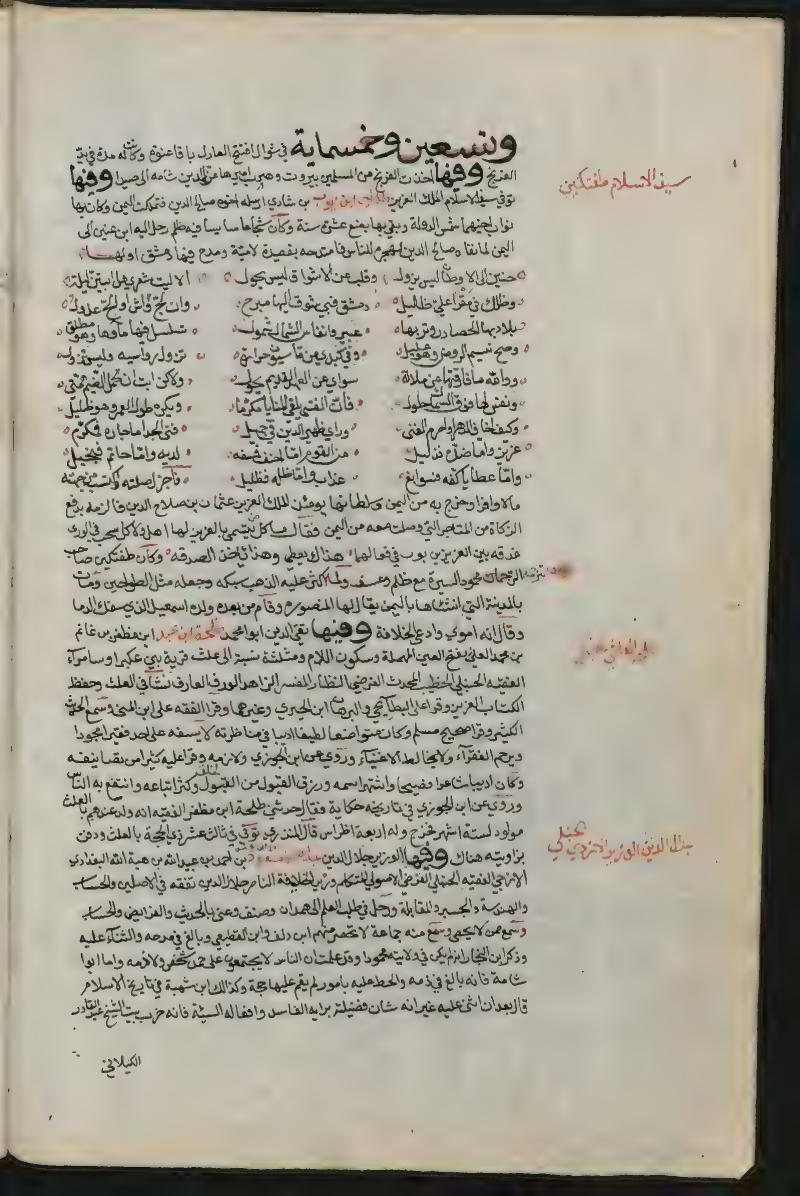 وتسعين وخمسماية في شوال افتتح العادل يافا عنوة وكانت له مدة في يد
الفرنج وفيها اخذت الفرنج من المسلمين بيروت وهرب اميرها عز الدين شامه الى صيدا وفيها
توفي سيف الاسلام الملك العزيز بن ايوب بن شادي ارسله اخوه صلاح الدين فتملك اليمن وكان بها
نواب اخيهما شمس الدولة وبقي بها بضع عشرة سنة وكان شجاعا سايسا فيه ظلم رحل اليه ابن عنين الى
اليمن لما نفاه صلاح الدين لهجوه للناس فامتدحه بقصيدة لامية ومدح فيها دمشق اولها
حنين الى الاوطان ليس يزول وقلب عن الاشواق ليس يحول الا ليت شعري هل ابيتن ليلة
وظلك في مقرا علي ظليل دمشق فبي شوق اليها مبرح وان لج واش او الح عذول
بلاد بها الحصباء در وتربها عبير وانفاس الشمال شمول تسلسل فيها ماؤها وهو مطلق
وصح نسيم الروض وهو عليل وفي كبدي من قاسيون حرارة تزول رواسيه وليس تزول
ووالله ما فارقتها عن ملالة سواي عن العهد القديم يحول ولاكن ابت ان تحمل الضيم همتي
ونفس لها فوق السماك حلول فان الفتى يلقى المنايا مكرما ويكره طول العمر وهو ذليل
وكيف اخاف الدهر او احرم الغنى وراي ظهير الدين في جميل فتى الجد اما جاره فمكرم
عزيز واما ضده فذليل من القوم اما احنف فسفه لديه واما حاتم فبخيل
واما عطايا كفه فسوابغ عذاب واما ظله فظليل فاجزل صلته واكتسب من جهته
مالا وافرا وخرج به من اليمن وسلطانها يومئذ الملك العزيز عثمان بن صلاح الدين فالزمه بدفع
الزكاة من المتاجر التي وصلت معه من اليمن فقال ما كل من يتسمى بالعزيز لها اهل ولا كل سحب في الورى
غدقه بين العزيزين بون في فعالهما هذاك يعطي وهذا ياخذ الصدقه وكان طغتكين صاحب
الترجمة محمود السيرة مع ظلم وعسف ولما اكثر عليه الذهب سبكه وجعله مثل الطواحين ومات
بالمدينة التي انشاها باليمن يقال لها المنصورة وقام من بعده ولده اسمعيل الذي سفك الدما
وقال انه اموي وادعى الخلافة وفيها تقي الدين ابوا محمد طلحة ابن مظفر بن غانم
بن محمد العلثي بفتح العين المهملة وسكون اللام ومثلثة نسبة الى علث قرية بين عكبرا وسامراء
الفقيه الحنبلي الخطيب المحدث الفرضي النظار المفسر الزاهد الورع العارف نشا في العلث وحفظ
الكتاب العزيز وقرا على البطايحي والبرهان ابن الحصري وغيرهما وقرا الفقه على ابن المنى وسمع الحديث
الكثير وقرا صحيح مسلم وكان متواضعا لطيفا اديبا في مناظرته لا يسفه على احد فقيرا مجودا
ويرحم الفقرآء ولا يخالط الاغنياء وروي عن ابن الجوزي ولازمه وقرا عليه كثيرا من تصانيفه
وكان اديبا شاعرا وفصيحا واشتهر اسمه ورزق القبول من الخلق وكثر اتباعه وانتفع به الناس
وروي عن ابن الجوزي في تاريخه حكاية وقال حدثني طلحة ابن مظفر الفقيه انه ولد عندهم بالعلث
مولود لستة اشهر فخرج وله اربعة اضراس قال المنذري توفي في ثالث عشر ذي الحجة بالعلث ودفن
بزاويته هناك وفيها الوزير جلال الدين بن احمد بن عبيد الله بن هبة الله البغدادي
الازجي الفقيه الحنبلي الفرضي الاصولي المتكلم وزير الخليفة الناصر جلال الدين تفقه في الاصلين والحساب
والهندسة والجبر والمقابلة ورحل في طلب العلم الى همدان وصنف وعني بالحديث والفرايض والحساب
وسمع ممن لا يحصى وسمع منه جماعة لا تحصر منهم ابن دلف وابن القطيعي وبالغ في مدحه والثناء عليه
وذكر ابن النجار انه لم يكن في ولايته محمودا وقد علمت ان الناس لا يجتمعون على حمد شخص ولا ذمه واما ابوا
شامة فانه بالغ في ذمه والحط عليه بامور لم يقم عليها حجة وكذلك ابن شهبة في تاريخ الاسلام
قال بعد ان اثنى عليه غير انه شان فضيلته برايه الفاسد وافعاله السيئة فانه خرب بيت الشيخ عبد القادر
الكيلاني
سيف الاسلام طغتكين
جلال الدين الوزير الازجي الحنبلي